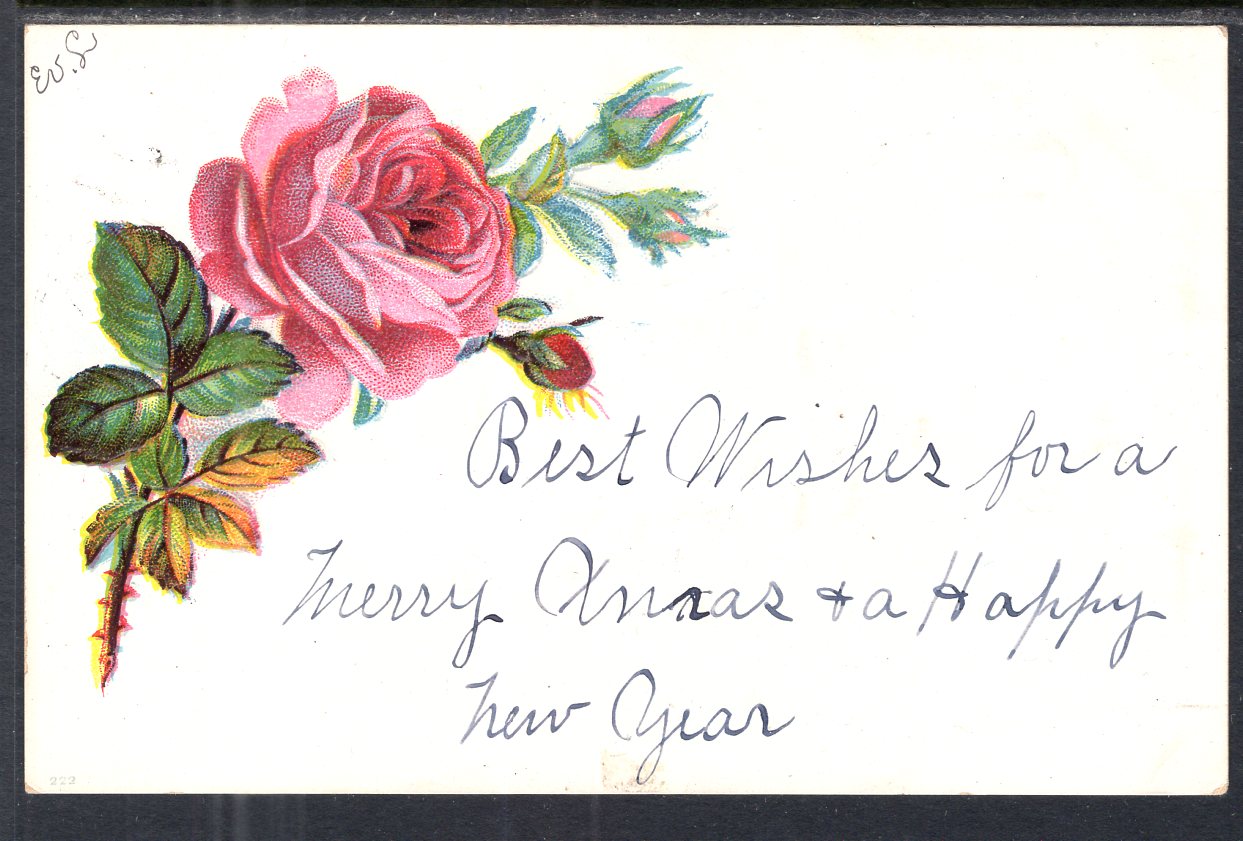 Best Wishes for a
Merry Xmas & a Happy
New Year
222